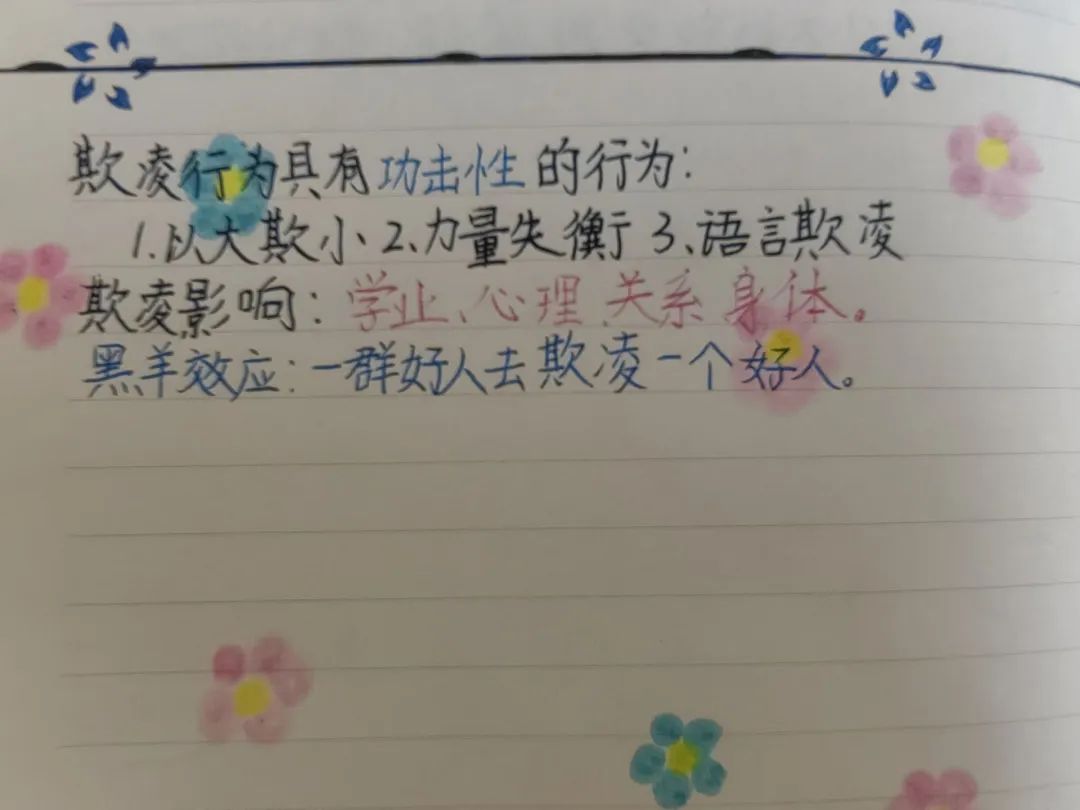 欺凌行为具有功击性的行为:
1.以大欺小 2、力量失衡 3、语言欺凌
欺凌影响:学业、心理、关系、身体。
黑羊效应:一群好人去欺凌一个好人。